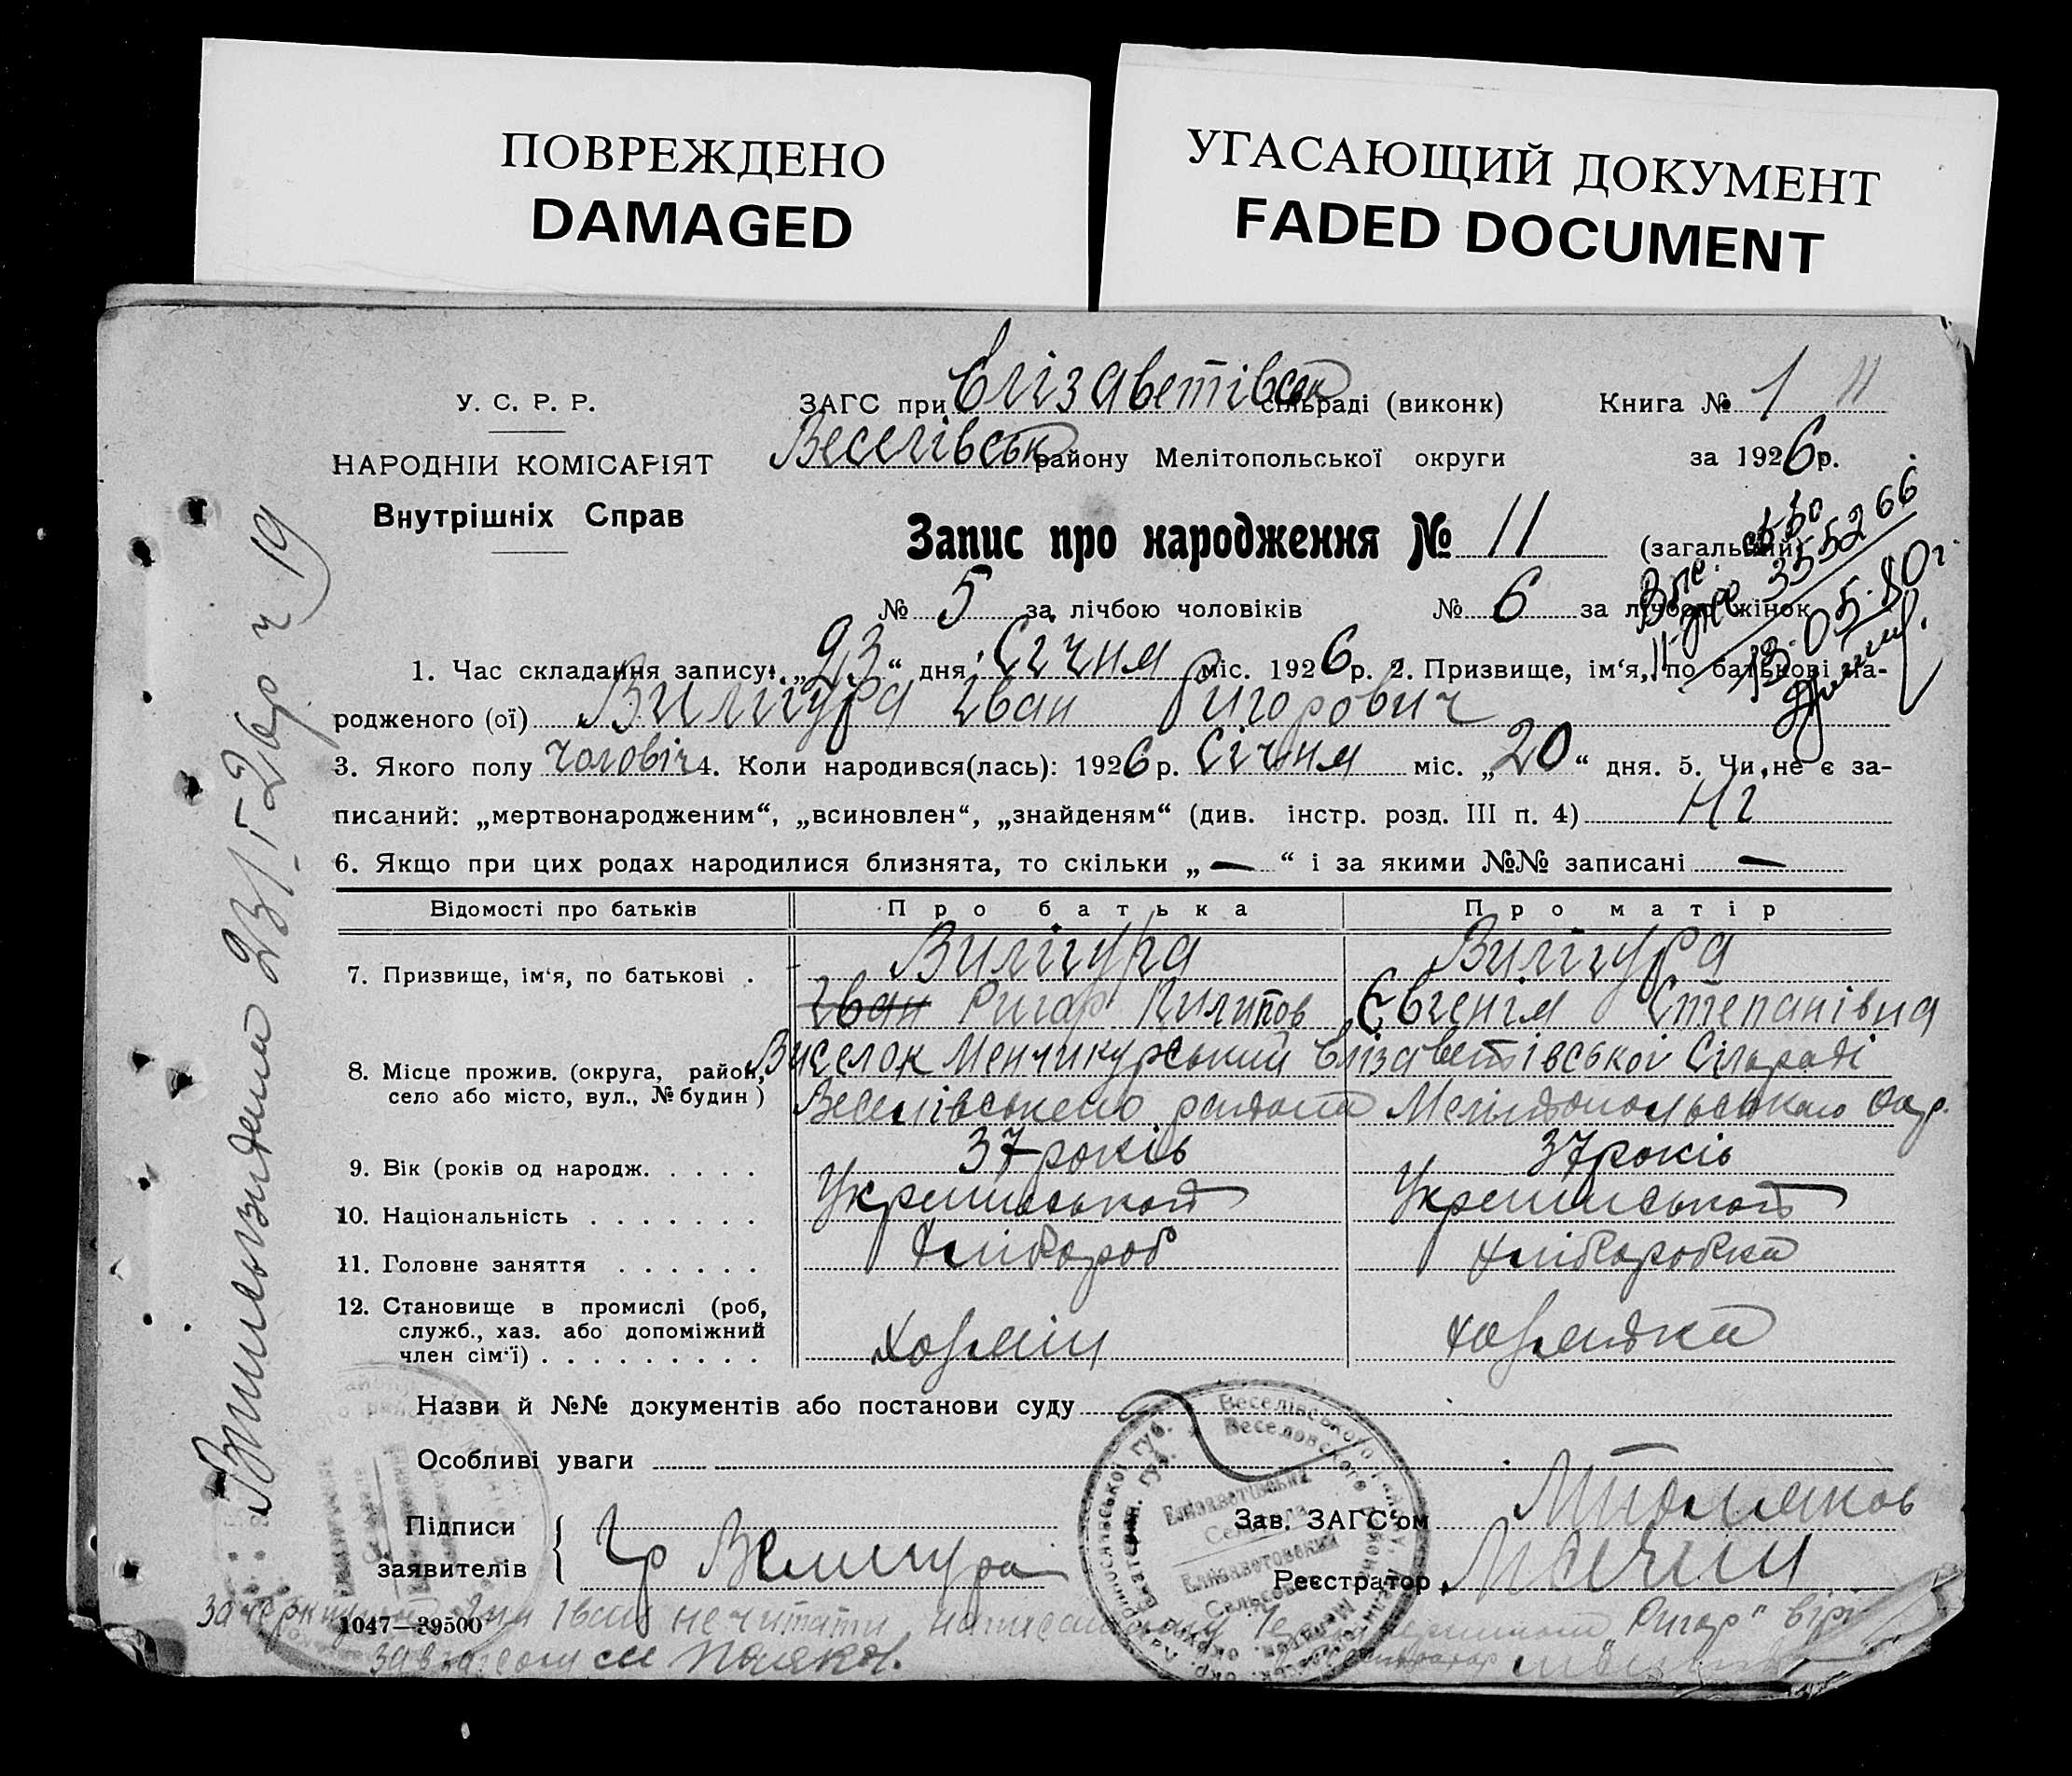 ПОВРЕЖДЕНО
DAMAGED
УГАСАЮЩИЙ ДОКУМЕНТ
FADED DOCUMENT
У. С. Р. Р.
НАРОДНІЙ КОМІСАРІЯТ
Внутрішніх Справ
ЗАГС при Єлізаветівськ сільраді (виконк) Книга № 1 11
Веселівськ району Мелітопольської округи за 1926 р.
Запис про народження № 11 (загальний)
№ 5 за лічбою чоловіків № 6 за лічбою жінок
3552 66
13.05.80 г.
1. Час складання запису: „23“ дня Січня міс. 1926 р. 2. Призвище, ім'я, по батькові на-
родженого (ої) Вилігура Іван Ригорович
3. Якого полу чоловіч 4. Коли народився(лась): 1926 р. Січня міс. „20“ дня. 5. Чи не є за-
писаний: „мертвонародженим“, „всиновлен“, „знайденям“ (див. інстр. розд. III п. 4) Ні
6. Якщо при цих родах народилися близнята, то скільки „—“ і за якими №№ записані —
Відомості про батьків Про батька Про матір
7. Призвище, ім'я, по батькові . Вилігура Вилігура
Іван Ригор Пилипов Євгенія Степанівна
8. Місце прожив. (округа, район, Виселок Менчикурський Єлізаветівської Сільраді
село або місто, вул., № будин) Веселівського району Мелітопольською Окр.
9. Вік (років од народж. . . . . 37 років 37 років
10. Національність . . . . . . . Української Української
11. Головне заняття . . . . . . Хлібороб Хліборобка
12. Становище в промислі (роб,
служб., хаз. або допоміжний
член сім'ї) . . . . . . . . . Хозяїн Хозяйка
Назви й №№ документів або постанови суду
Особливі уваги
Підписи
заявителів
Гр Велигура
Зав. ЗАГС'ом
Реєстратор
1047—39500
Іван не читати
Ригор"
Веселівського
Веселовского
Єлізаветівська
Елизаветовский